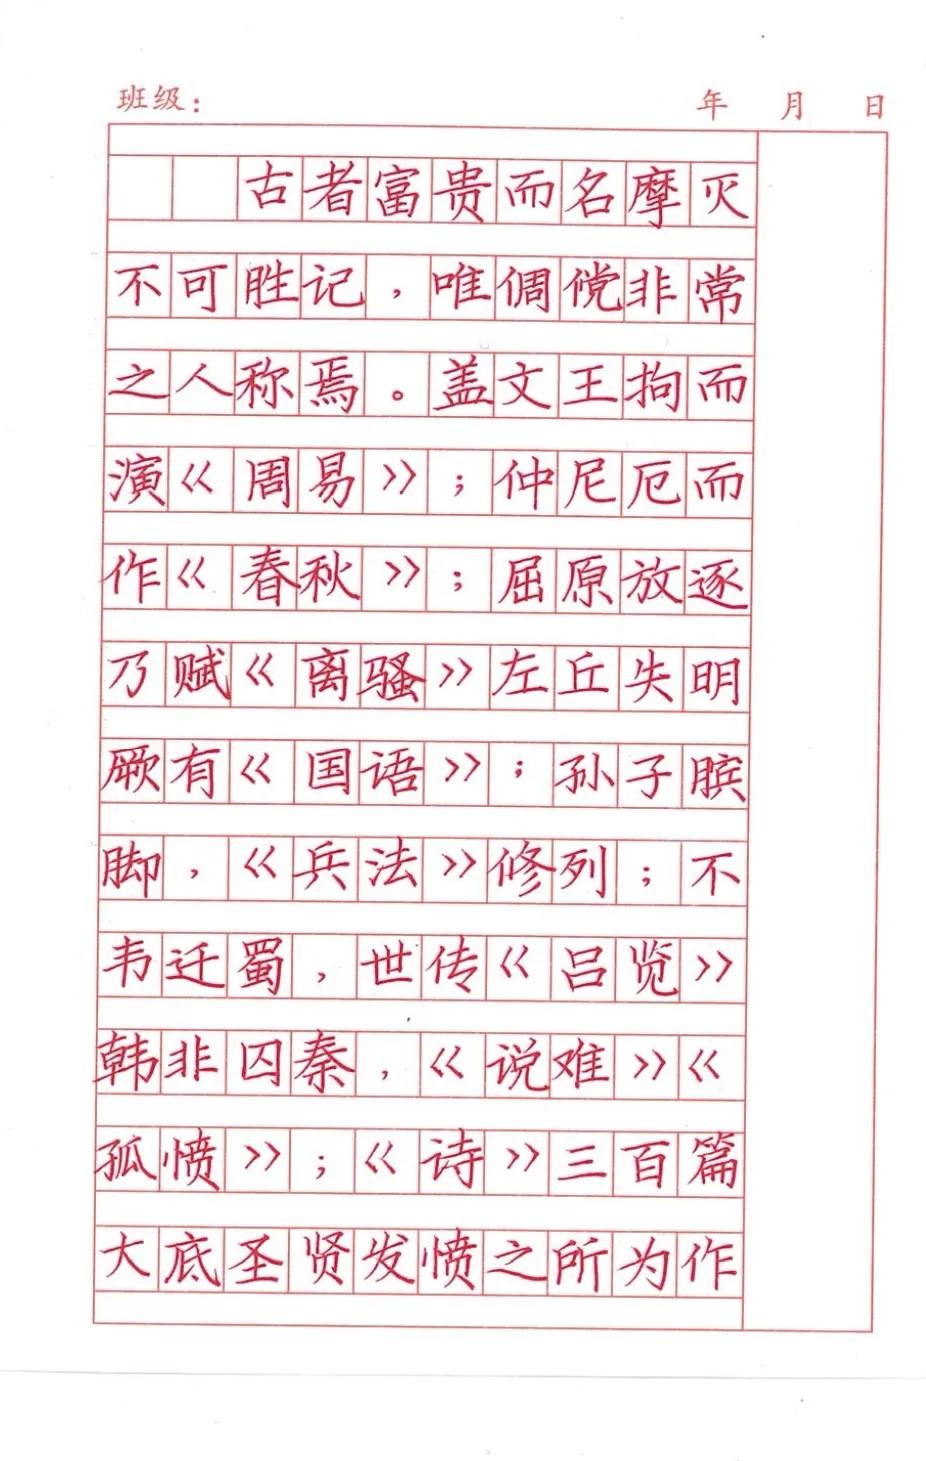 班级： 年 月 日
古者富贵而名摩灭
不可胜记，唯倜傥非常
之人称焉。盖文王拘而
演《周易》；仲尼厄而
作《春秋》；屈原放逐
乃赋《离骚》左丘失明
厥有《国语》；孙子膑
脚，《兵法》修列；不
韦迁蜀，世传《吕览》
韩非囚秦，《说难》《
孤愤》；《诗》三百篇
大底圣贤发愤之所为作